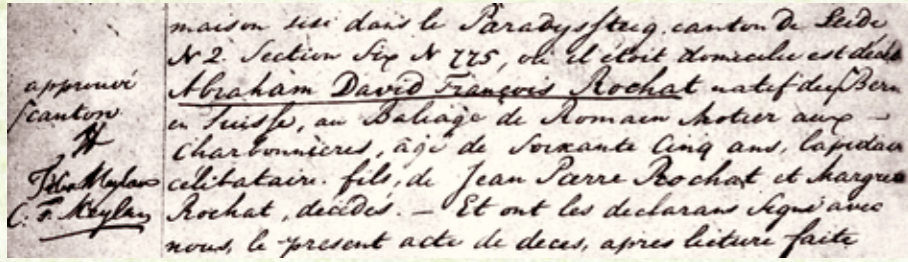 maison sisi dans le Paradyssteig canton de Leide
N 2. Section Six N 775, où il étoit domicilie est décéd
approuvé
canton
Abraham David François Rochat natif du Bern
en Suisse, au Baliage de Romain Motier aux –
Charbonnieres, âgé de Soixante Cinq ans, lapidair
celibataire. fils, de Jean Pierre Rochat et Margue
Meylan
C. F. Meylan
Rochat, décédés. – Et ont les declarans signé avec
nous, le present acte de deces, apres lecture faite